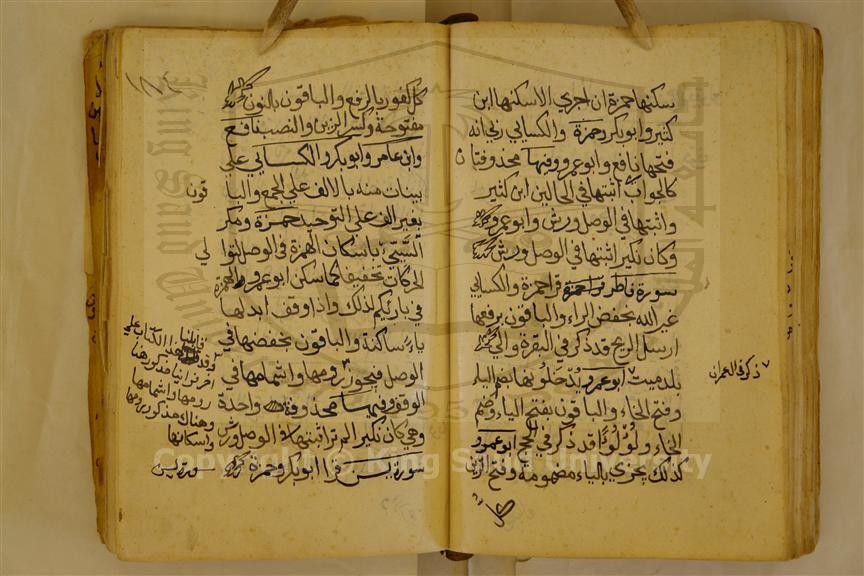 سكنها حمزة ان اجري الا سكنها ابن
كثير وابو بكر وحمزة والكسايي ربي انه
فتحها نافع وابو عمرو وفيها محذوفتان
كالجواب اثبتها في الحالين ابن كثير
واثبتها في الوصل ورش وابو عمرو
وكان نكير اثبتها في الوصل ورش
سورة فاطر قرا حمزة والكسايي
غير الله بخفض الراء والباقون برفعها
ارسل الريح قد ذكر في البقرة والي
بلد ميت ابو عمرو يدخلونها بضم الياء
وفتح الخاء والباقون بفتح الياء وضم
الخاء ولؤلؤا قد ذكر في الحج ابو عمرو
كذلك يجزي بالياء مضمومة وفتح الزاي
كل
ذكر في العمران
كل كفور بالرفع والباقون بالنون
مفتوحة وكسر الزين والنصب نافع
وابن عامر وابو بكر والكسايي علي
بينات منه بالالف علي الجمع والباقون
بغير الف علي التوحيد حمزة ومكر
السيئ باسكان الهمزة في الوصل لتوالي
الحركات تخفيفا كما سكن ابو عمرو الهمزة
في بارئكم لذلك واذا وقف ابدلها
ياء ساكنة والباقون بخفضها في
الوصل فيجوز رومها واشمامها في
الوقف وفيها محذوفة واحدة
وهي كان نكير اثبتها في الوصل ورش
سورة يس قرا ابو بكر وحمزة
هذا الكتاب علي
رومها واشمامها
واسكانها
Copyright © King Saud University